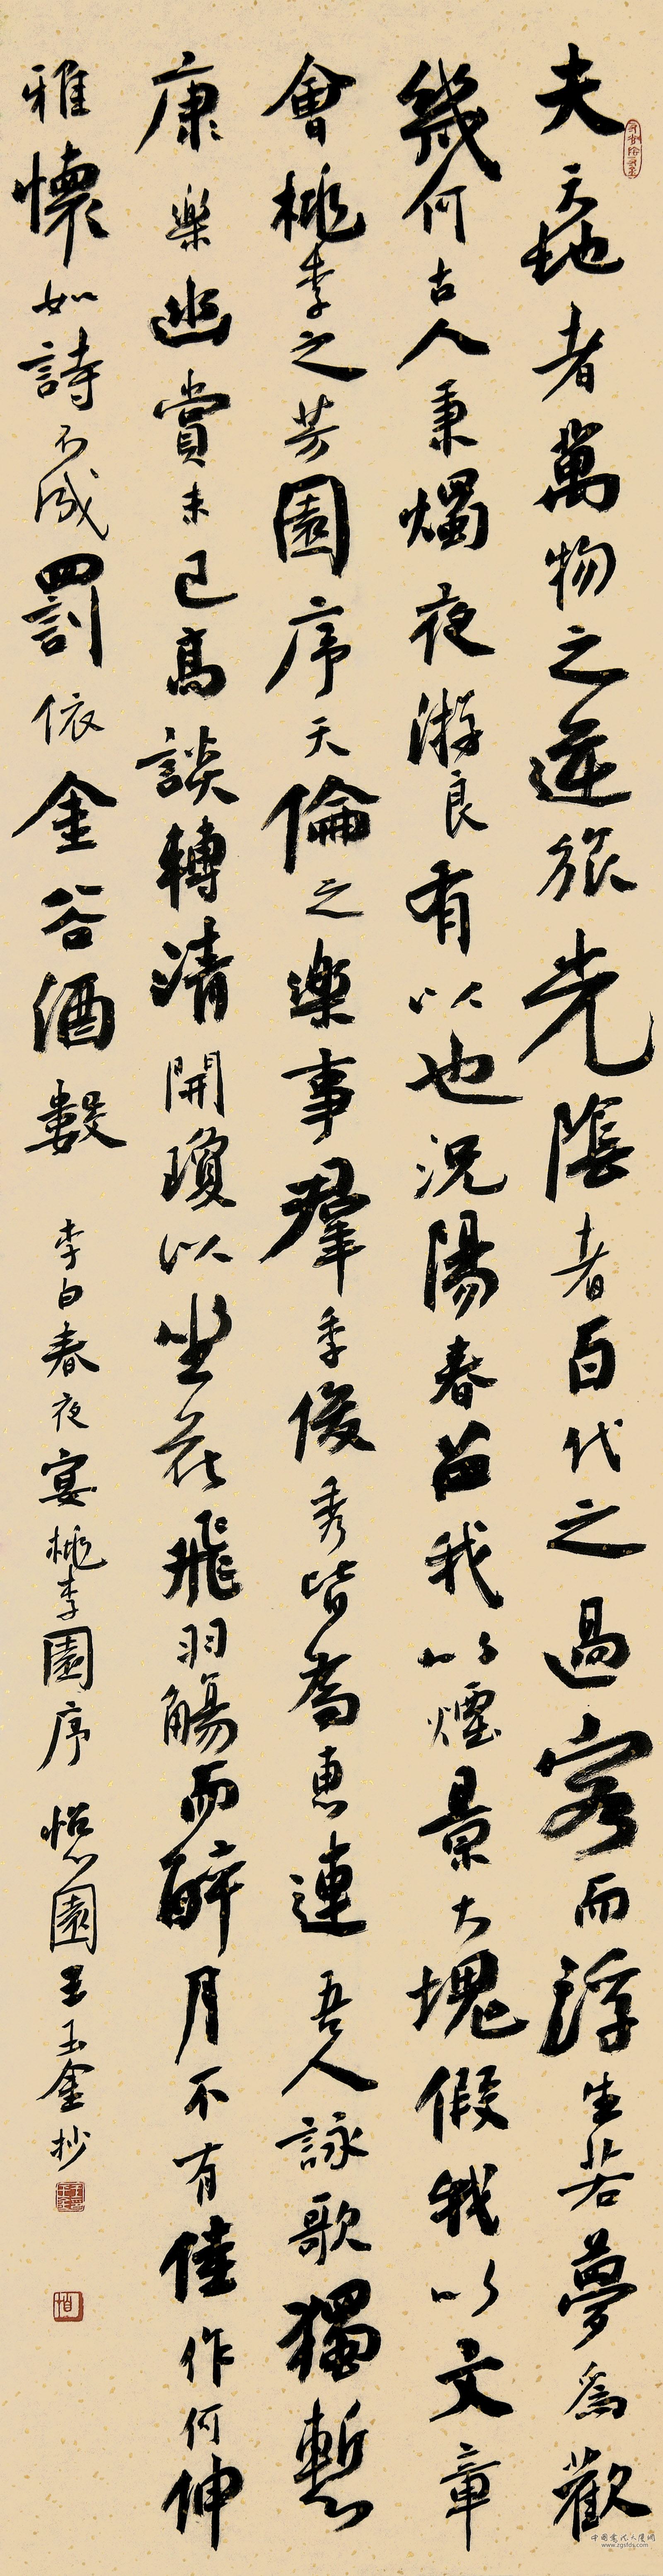 夫天地者萬物之逆旅光陰者百代之過客而浮生若夢為歡
幾何古人秉燭夜游良有以也況陽春召我以煙景大塊假我以文章
會桃李之芳園序天倫之樂事羣季俊秀皆為惠連吾人詠歌獨慙
康樂幽賞未已高談轉清開瓊以坐花飛羽觴而醉月不有佳作何伸
雅懷如詩不成罰依金谷酒數
李白春夜宴桃李園序 怡園王玉金抄
中国书法大厦网
www.zgsfds.com